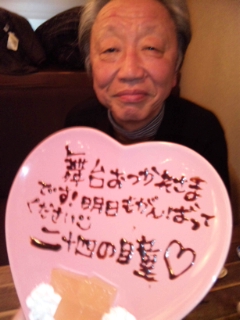 舞台おつかれさま
です!明日もがんばって
ください
二十四の瞳♡